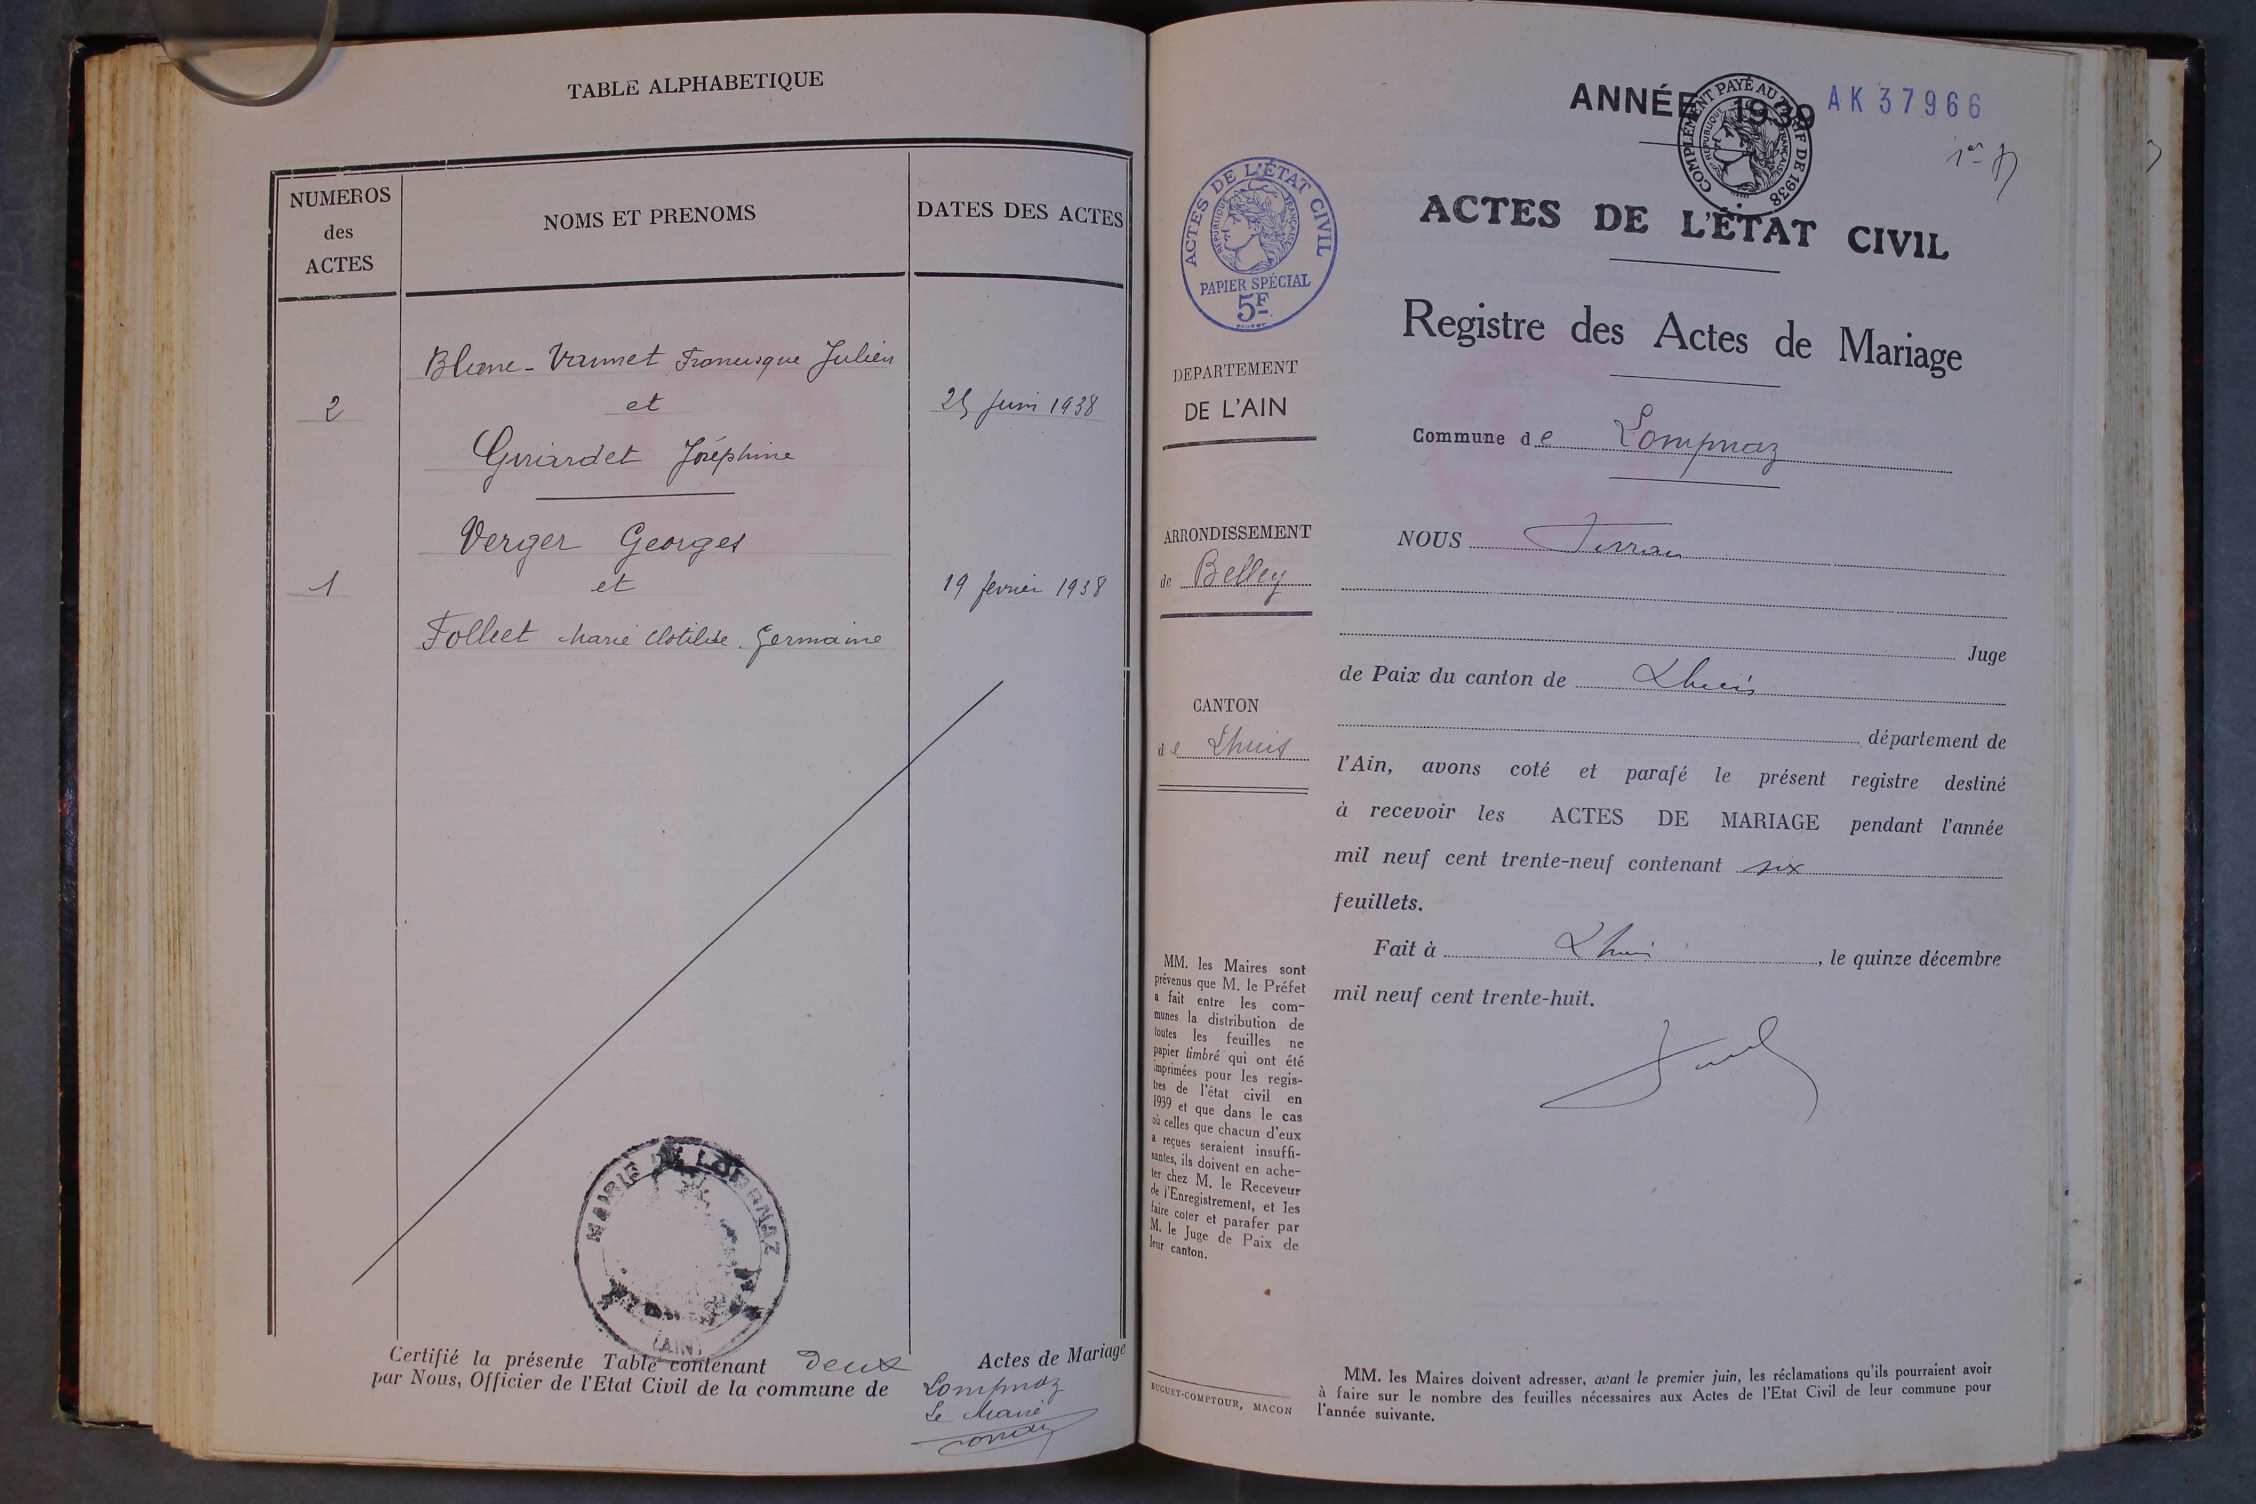 TABLE ALPHABETIQUE
NUMEROS
des
ACTES
NOMS ET PRENOMS
DATES DES ACTES
Blanc-Vannet Francisque Julien
2
et
25 Juin 1938
Girardet Joséphine
Verger Georges
1
et
19 février 1938
Follet Marie Clotilde Germaine
MAIRIE DE LOMPNAZ
(AIN)
Certifié la présente Table contenant deux Actes de Mariage
par Nous, Officier de l'Etat Civil de la commune de Lompnaz
Le Maire
ANNÉE 1939
AK 37966
COMPLÉMENT PAYÉ AU TARIF DE 1938
RÉPUBLIQUE FRANÇAISE
ACTES DE L'ÉTAT CIVIL
RÉPUBLIQUE FRANÇAISE
PAPIER SPÉCIAL
5F
ACTES DE L'ÉTAT CIVIL
Registre des Actes de Mariage
DEPARTEMENT
DE L'AIN
Commune de Lompnaz
ARRONDISSEMENT
de Belley
CANTON
de Lhuis
NOUS
Juge
de Paix du canton de Lhuis
département de
l'Ain, avons coté et parafé le présent registre destiné
à recevoir les ACTES DE MARIAGE pendant l'année
mil neuf cent trente-neuf contenant six
feuillets.
Fait à Lhuis, le quinze décembre
mil neuf cent trente-huit.
MM. les Maires sont
prévenus que M. le Préfet
a fait entre les com-
munes la distribution de
toutes les feuilles ne
papier timbré qui ont été
imprimées pour les regis-
tres de l'état civil en
1939 et que dans le cas
où celles que chacun d'eux
a reçues seraient insuffi-
santes, ils doivent en ache-
ter chez M. le Receveur
de l'Enregistrement, et les
faire coter et parafer par
M. le Juge de Paix de
leur canton.
BUGUET-COMPTOUR, MACON
MM. les Maires doivent adresser, avant le premier juin, les réclamations qu'ils pourraient avoir
à faire sur le nombre des feuilles nécessaires aux Actes de l'Etat Civil de leur commune pour
l'année suivante.